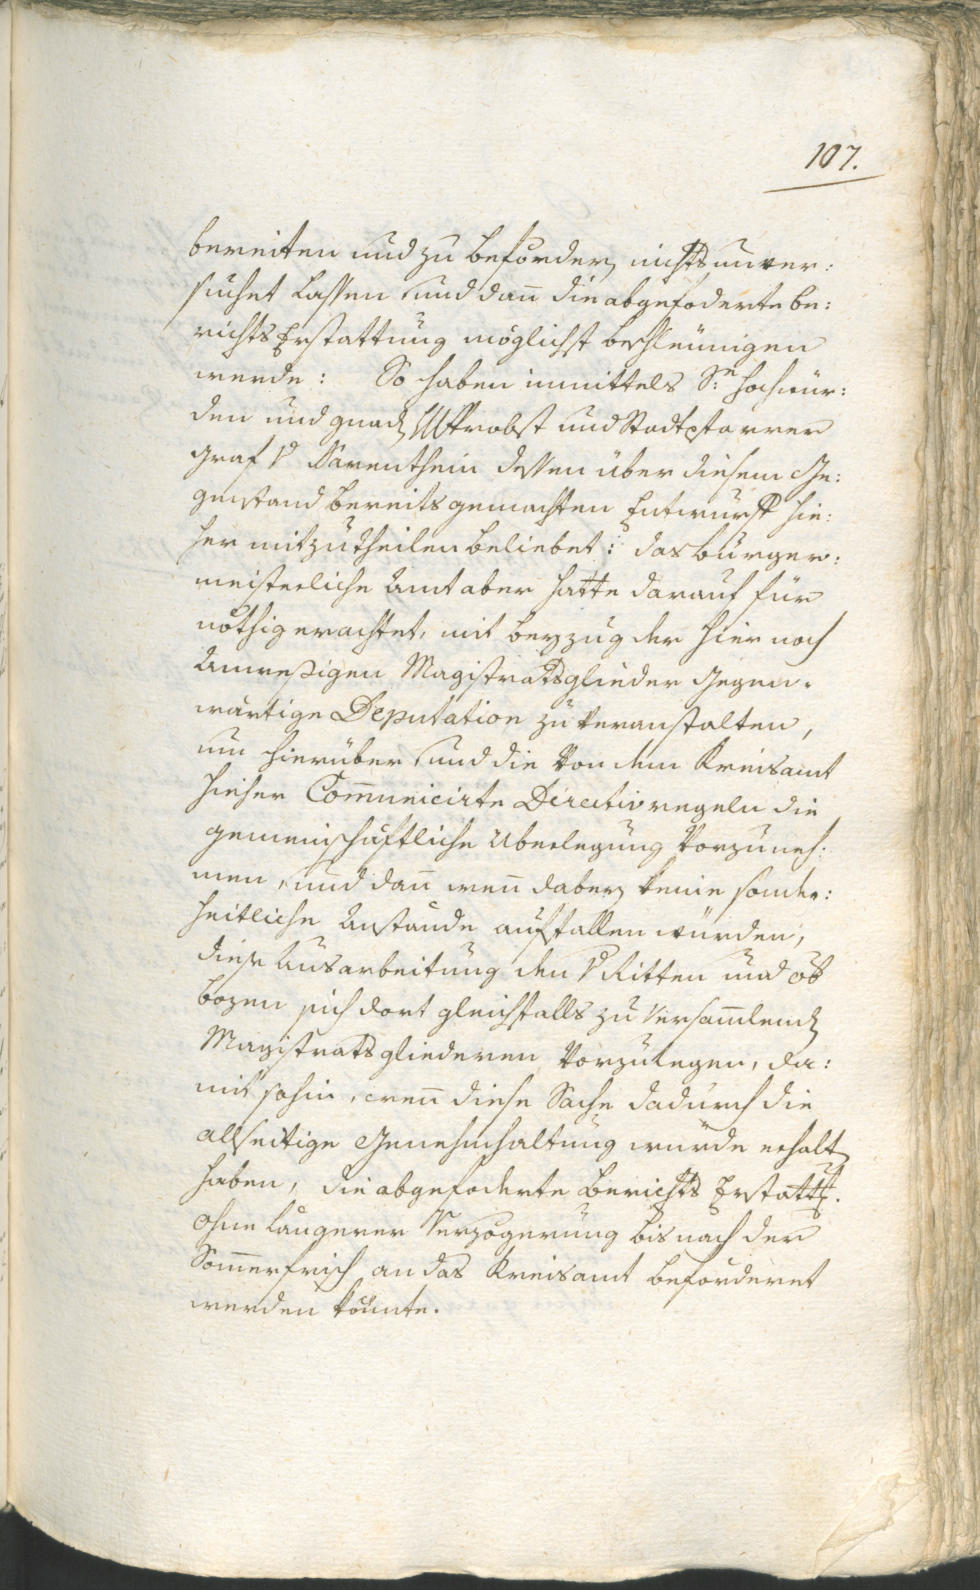 107.
bereiten und zu befördern nichts unver:
suchet lassen, und dan̄ die abgefoderte Be:
richts Erstattung möglichst beschleünigen
werde: So haben inmittels Sr. Hochwür:
den und gnadn Probst und Stadtpfarrer
Graf v Sarenthein dessen über diesem Ge:
genstand bereits gemachten Entwurf hie:
her mitzutheilen beliebet: das burger:
meisterliche Amt aber hatte darauf für
nöthig erachtet, mit beyzug der hier noch
Anweßigen Magistratsglieder gegen:
wärtige Deputation zu veranstalten,
um hierüber, und die von dem Kreisamt
hieher Com̄unicirte Directivregeln die
gemeinschäftliche Uberlegung vorzuneh:
men, und dan̄ wen̄ dabey keine sonder:
heitliche Anstände auffallen würden,
diese Ausarbeitung den v Ritten und ob
bozen sich dort gleichfalls zu versam̄lendn
Magistratsgliederen vorzulegen, da:
mit sohin, wen̄ diese Sache dadurch die
allseitige Genehmhaltung würde erhaltn
haben, die abgefoderte Berichts Erstattg.
ohne längerer Verzögerung bis nach der
Som̄erfrisch an das Kreisamt beförderet
werden könnte.